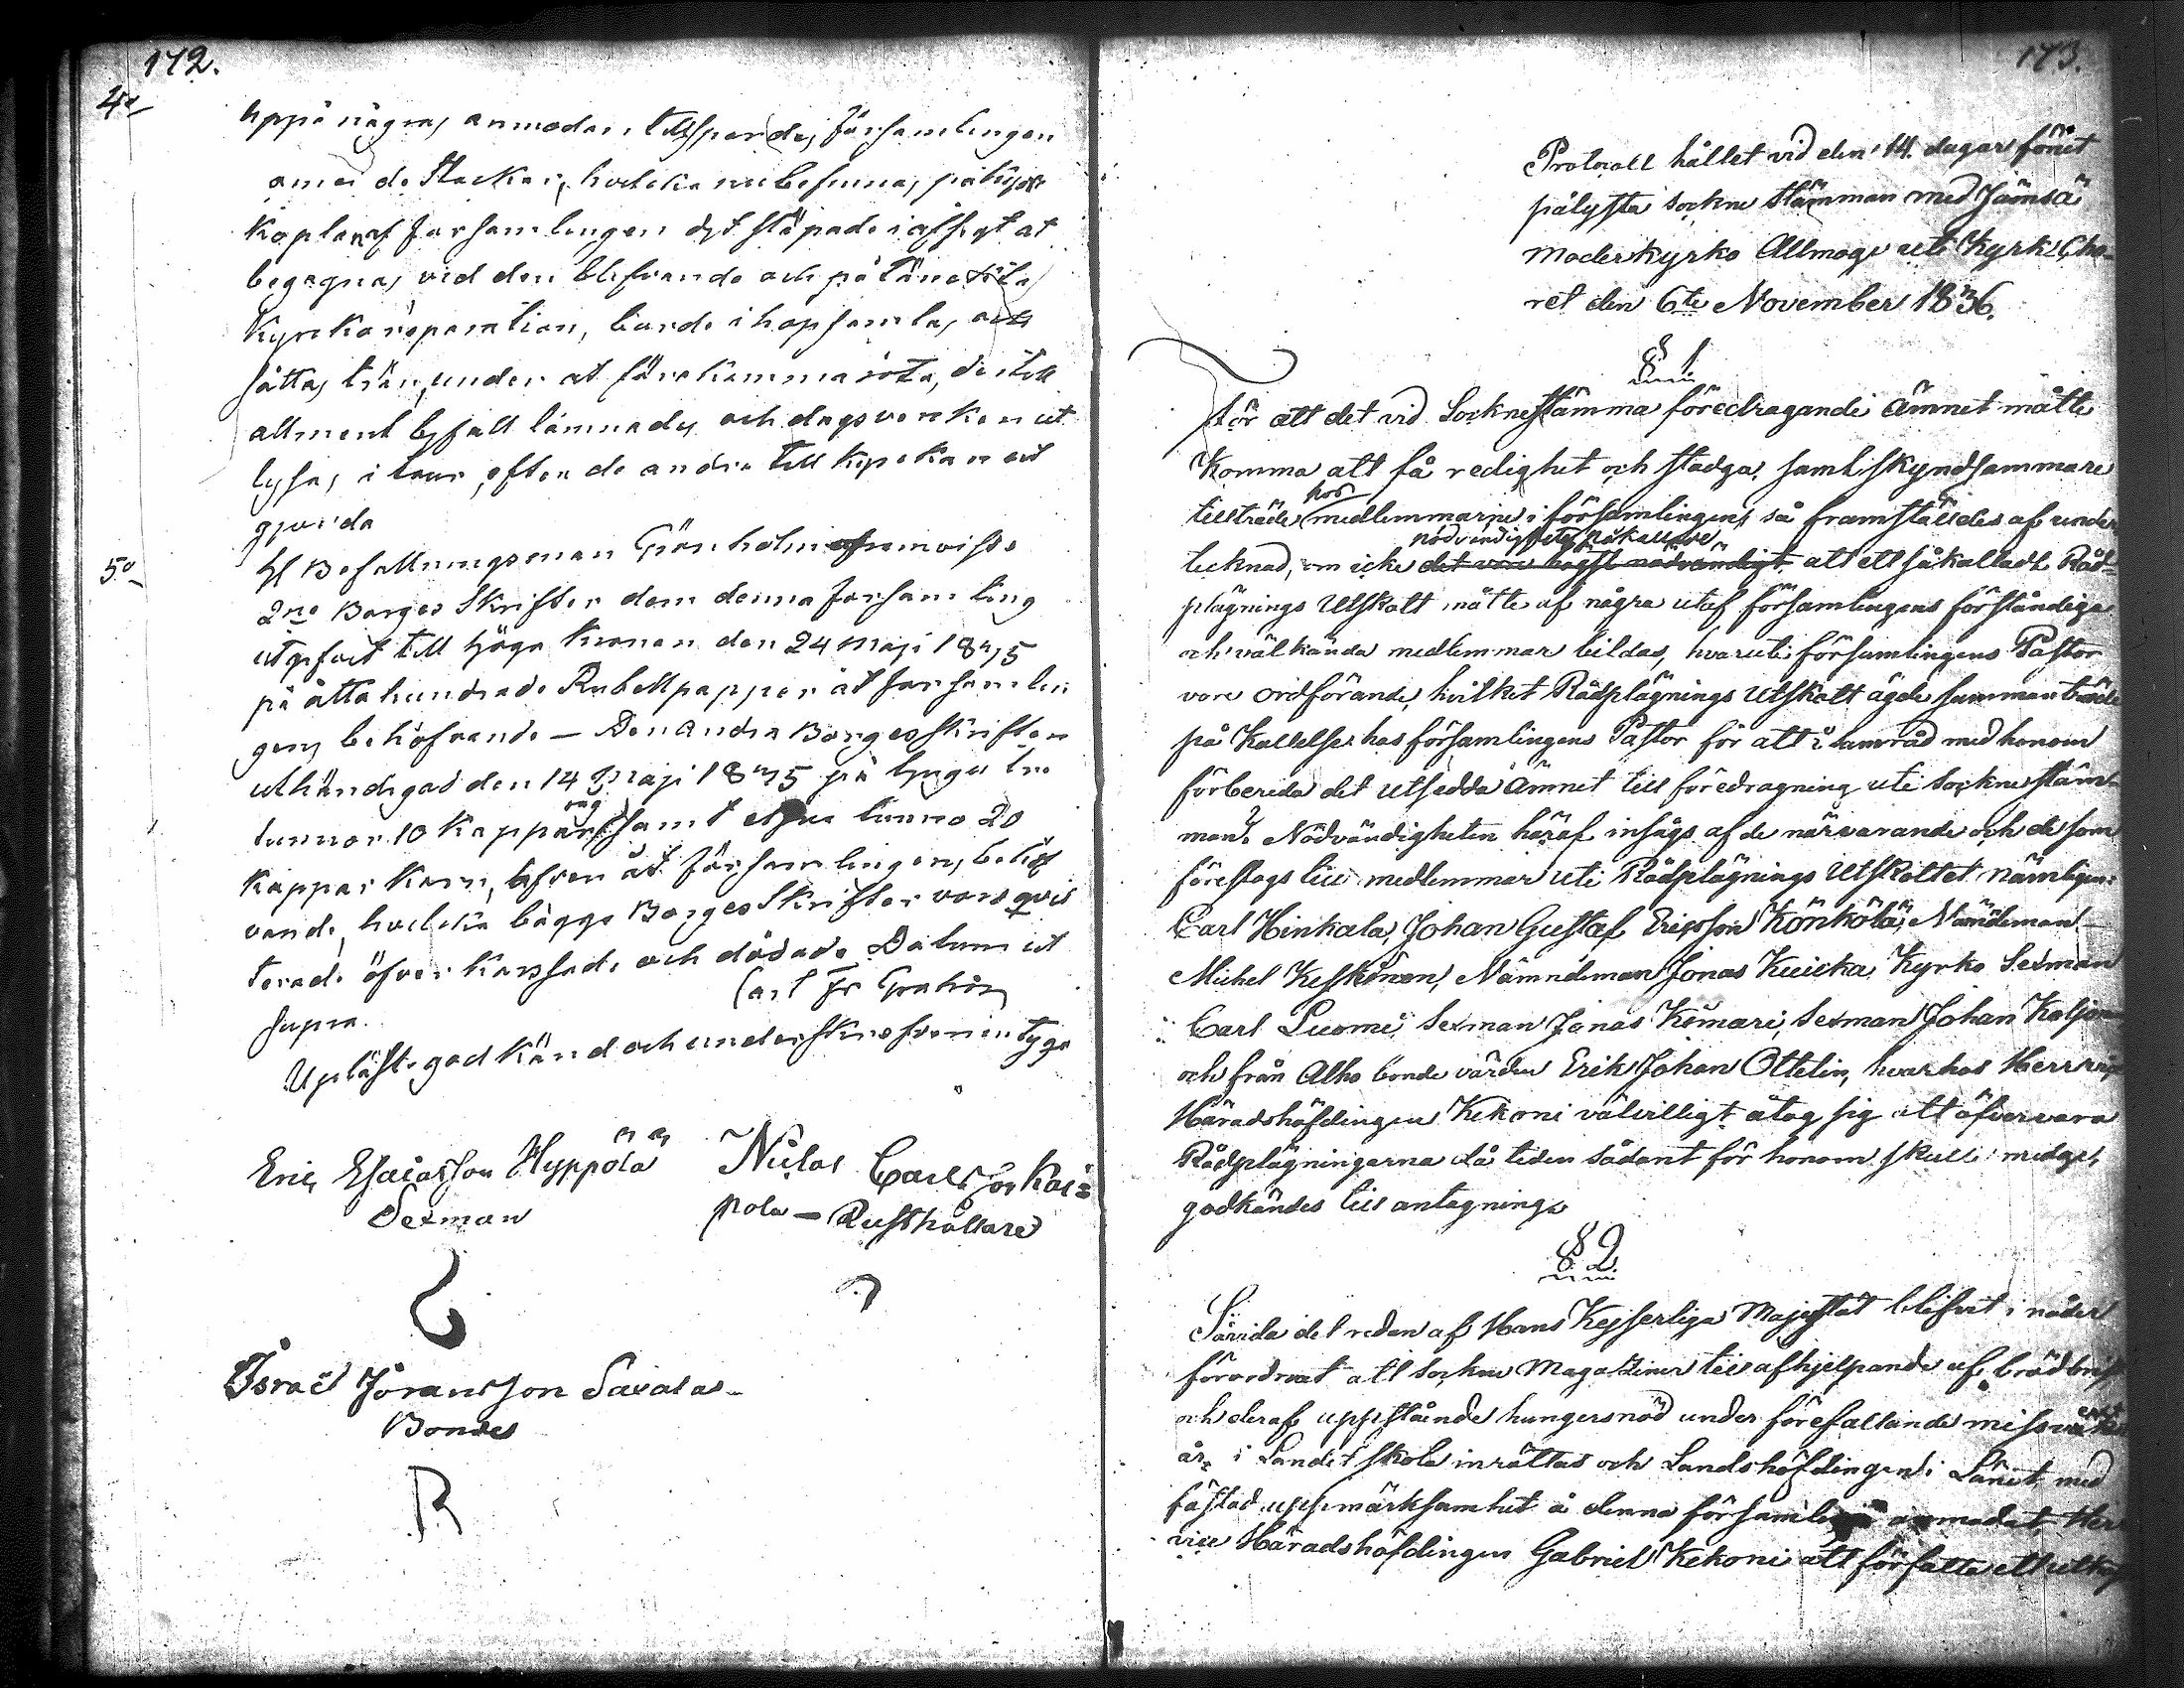 172.
4o
uppå några anmodan tillspordes Församlingen
om ei de Stockar, hvilka nu befinnas på kyrko
Kaplan af församlingen dyt släpade i afsigt at
begagnas vid den blifvande och påtänckta
Kyrko reparation, borde ihopsamlas och
sättas trär under at förekomma röta, dertill
allment byfall lämnades och dagsverken ut
lysas i tour efter de andra till kyrkan ut
gjorda
5o
H Befallningsman Grönholm uppviste
2ne Borges Skrifter dem denna Församling
utgifvit till Höga Kronan den 24 Maji 1835
på åtta hundrade Rubel papper åt församlin
gens behöfvande — Den andra Borgesskriften
uthändigad den 14 Maji 1835 på tjugu tre
tunnor 10 Kappar råg samt en tunna 20
Kappar Korn, äfven åt församlingens behöf
vande, hvilka bägge Borges Skrifter vore qvit
terade öfverkorssade och dödade. Datum ut
supra. Carl Fr
Upläst, godkänd och underskrefven intyga
Eric Esaiasson Hyppölä
Sexman
Nicklas Carlsson Kai=
pola — Rusthållare
Israel Jöransson Savalas
Bonde
173.
Protocoll hållet vid den 14. dagar förut
pålysta sockne stämman med Jämsä
Moderkyrko Allmoge uti Kyrk Cho-
ret den 6te November 1836.
§ 1
För att det vid Sockne stämma föredragande ämnet måtte
Komma att få redighet och stadga, samt skyndsammare
tillträde hos medlemmarne i församlingen, så framstäldes af under
tecknad, om icke det vore högst nödvändigt nödvändigheten påkallade att ett så kalladt Råd-
plägnings Utskott måtte af några utaf församlingens förståndiga
och välkända medlemmar bildas, hvaruti församlingens Pastor
vore ordförande, hvilket Rådplägnings Utskott ägde sammanträde
på Kallelse hos församlingens Pastor för att i samråd med honom
förbereda det utsedda ämnet till föredragning uti Sockne stäm-
man. Nödvändigheten häraf insågs af de närvarande och de som
föreslogs till medlemmar uti Rådplägnings Utskottet nämligen:
Carl Hinkala, Johan Gustaf Ericsson Könkölä, Nämdeman
Michel Keskinen, Nämndeman Jonas Kuicka, Kyrko Sexman
Carl Luomi, Sexman Jonas Kömari, Sexman Johan Koljonen
och från Alho bonde värden Erik Johan Ottelin, hvarhos Herr vice
Häradshöfdingen Kekoni välvilligt åtog sig att öfvervara
Rådplägningarna då tiden sådant för honom skulle medge,
godkändes till antagning.
§ 2
Särida det redan af Hans Kejserliga Majestät blifvit i nåder
förordnat att Socken Magaziner till afhjelpande af brödbrist
och deraf uppstående hungersnöd under förefallande missväxt
år, i Landet skola inrättas och Landshöfdingen i Länet, med
fästad uppmärksamhet å denna församling anmodat Herr
vice Häradshöfdingen Gabriel Kekoni att författa ett utkast